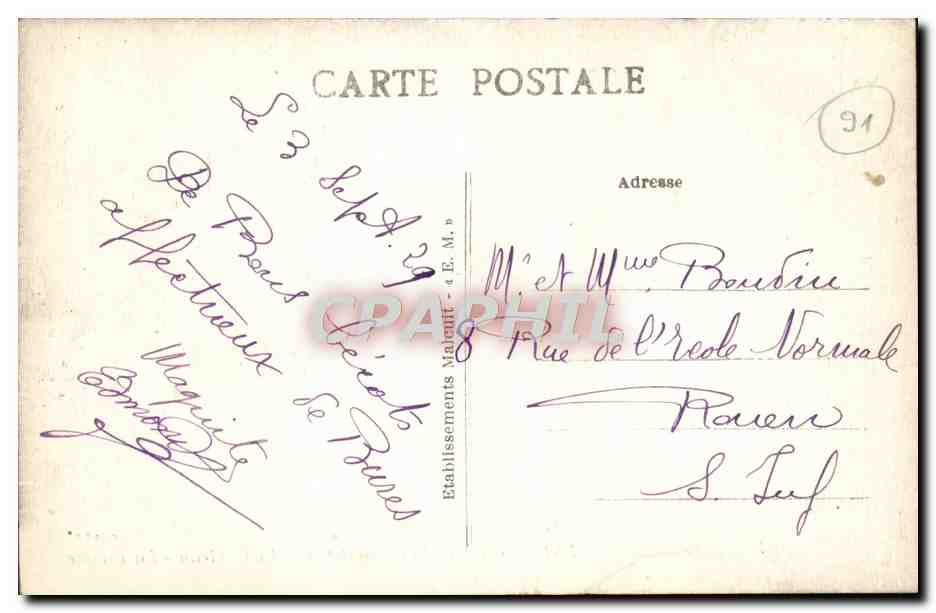 CARTE POSTALE
91
Le 3 Sept. 29
De Bons bécots de Bures
affectueux
Edmond
Etablissements Malcuit - « E. M. »
Adresse
Mr et Mme Boudin
8 Rue de l'École Normale
Rouen
S. Inf
CPAPHIL